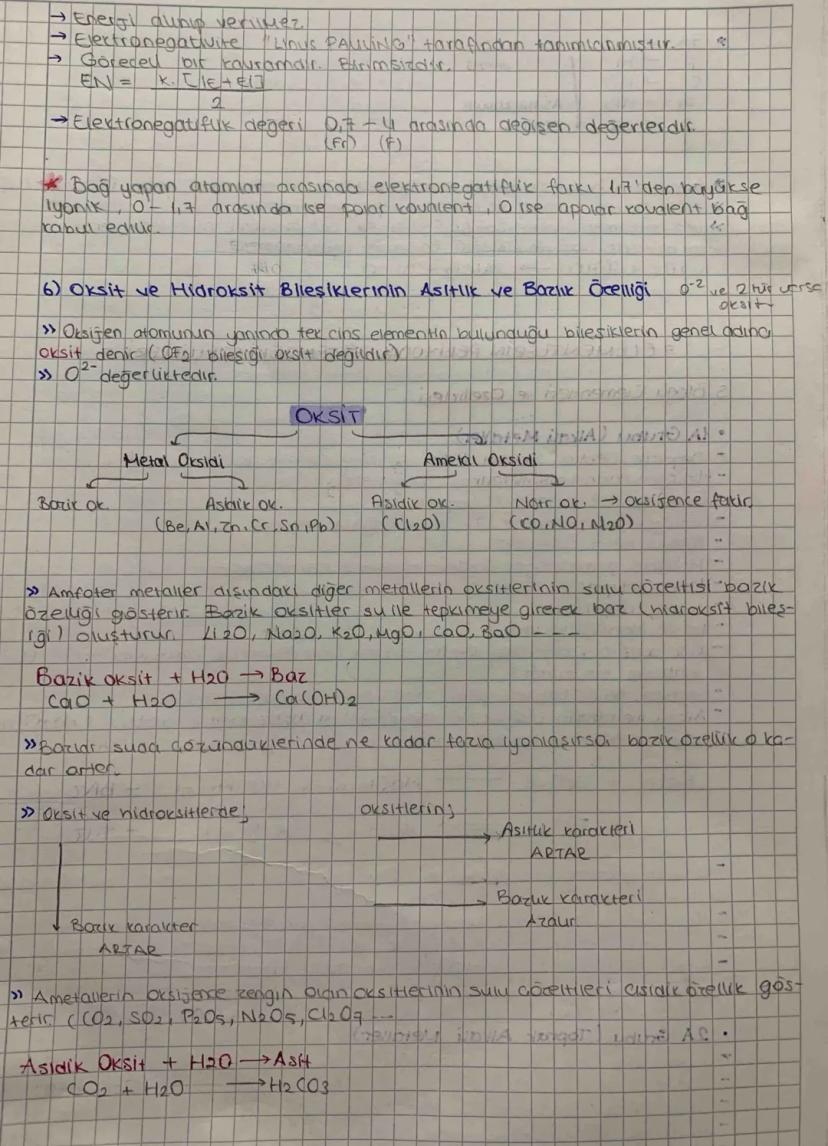 → Enerji alınıp verilmez.
→ Electronegativite "Linus PAULING" tarafından tanımlanmıştır.
→ Göreceli bir kavramdır. Birimsizdir.
EN = k. [IE + EI]
2
→ Elektronegatiflik değeri 0,7 - 4 arasında değişen değerlerdir.
(Fr) (F)
* Bağ yapan atomlar arasında elektronegatiflik farkı 1,7'den büyükse
iyonik, 0 - 1,7 arasında ise polar kovalent, 0 ise apolar kovalent bağ
kabul edilir.
6) Oksit ve Hidroksit Bileşiklerinin Asitlik ve Bazlık Özelliği O⁻² ve 2 tür varsa
oksit
» Oksijen atomunun yanında tek cins elementin bulunduğu bileşiklerin genel adına
oksit denir (OF₂ bileşiği oksit değildir)
» O²⁻ değerliktedir.
OKSİT
Metal Oksidi Ametal Oksidi
Bazik ok. Asidik ok. Asidik ok. Nötr ok. → oksijence fakir
(Be, Al, Zn, Cr, Sn, Pb) (Cl₂O) (CO, NO, N₂O)
» Amfoter metaller dışındaki diğer metallerin oksitlerinin sulu çözeltisi bazik
özelliği gösterir. Bazik oksitler su ile tepkimeye girerek baz (hidroksit bileş-
iği) oluşturur. Li2O, Na2O, K2O, MgO, CaO, BaO - - -
Bazik oksit + H2O → Baz
CaO + H2O → Ca(OH)₂
» Bazlar suda çözündüklerinde ne kadar fazla iyonlaşırsa bazik özellik o ka-
dar artar.
» Oksit ve hidroksitlerde; oksitlerin;
Asitlik karakteri
ARTAR
Bazlık karakteri
Azalır
Bazik karakter
ARTAR
» Ametallerin oksijence zengin olan oksitlerinin sulu çözeltileri asidik özellik gös-
terir. (CO2, SO2, P2O5, N2O5, Cl2O7 ...
Asidik Oksit + H2O → Asit
CO₂ + H2O → H₂CO3